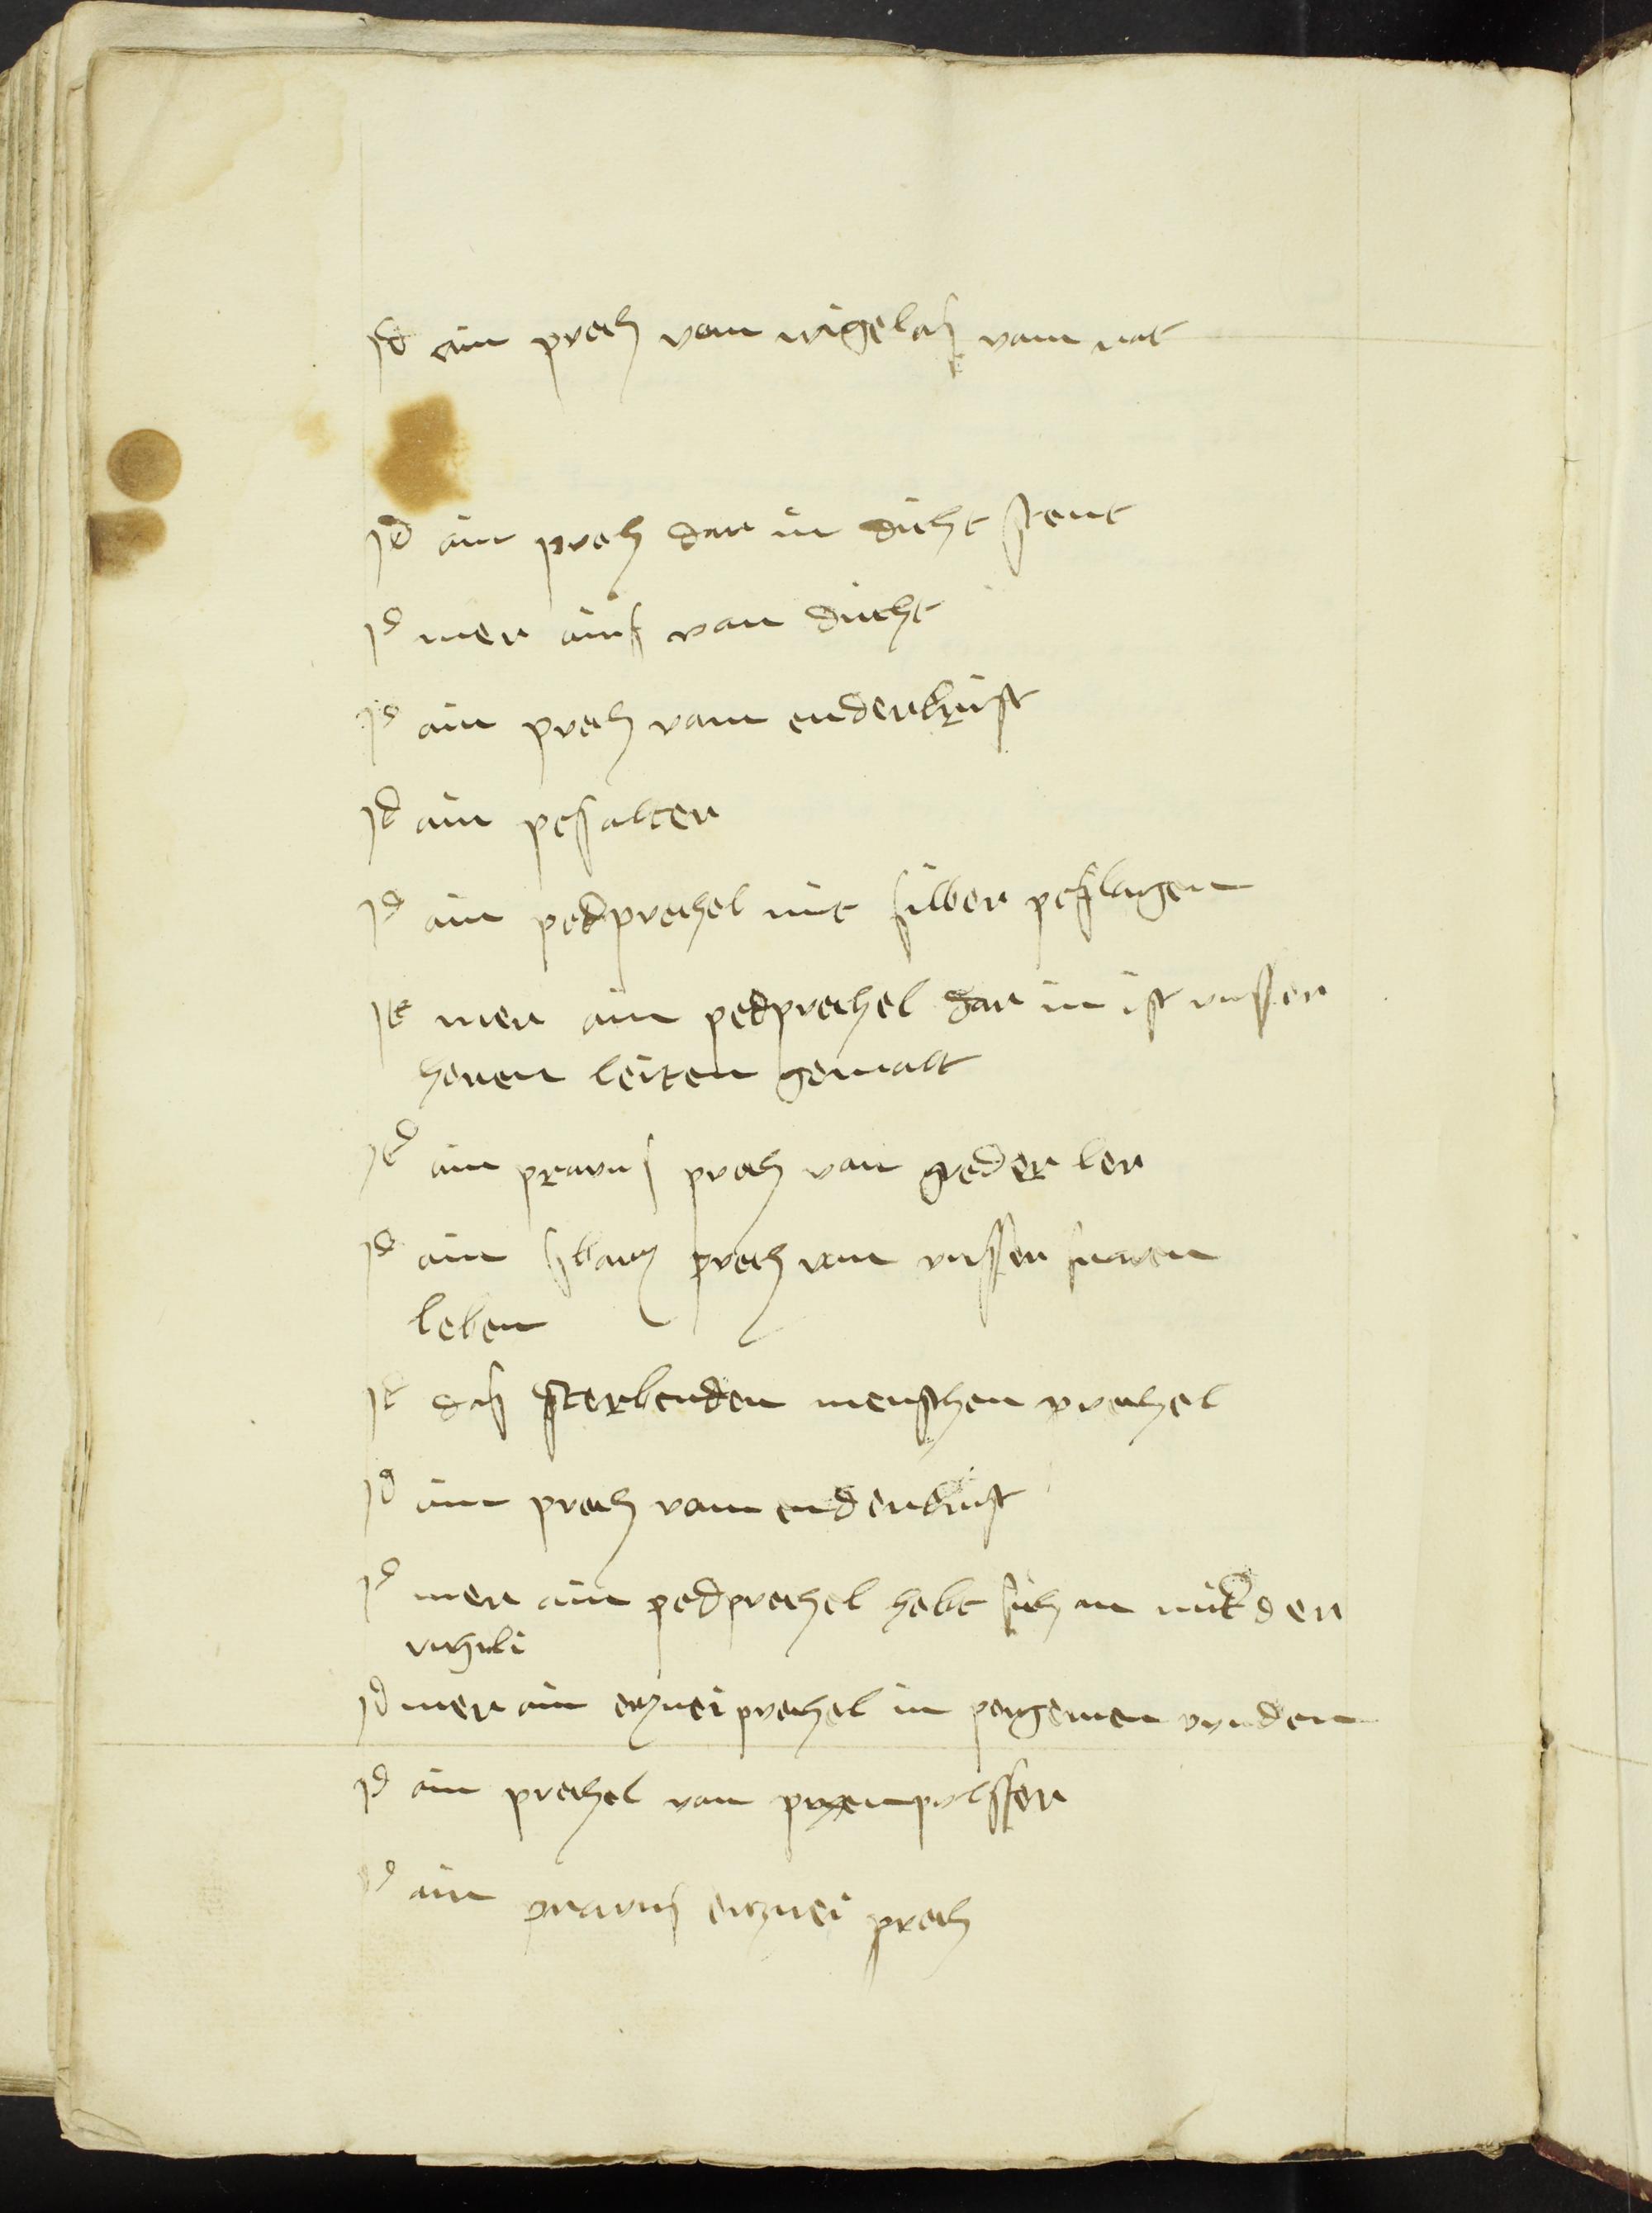 Jt ain puech vom wigelas vom rat
Jt ain puech dar in dicht stent
Jt mer ains van dicht
Jt ain puech vam enderkrist
Jt ain pessalter
Jt ain petpuechel mit silber peslagen
Jt mer ain petpuechel dar in ist vnsser
heren leiten gemalt
Jt ain prauns puech van der ler
Jt ain sbarcz puech van vnsser frawen
leben
Jt das sterbenden menschen puechel
Jt ain puech vam enderkrist
Jt mer ain petpuechel hebt sich an mit der
vigili
Jt mer ain erznei puechel in pergemen
Jt ain puechel van puxenpulffer
Jt ain prauns erznei puech